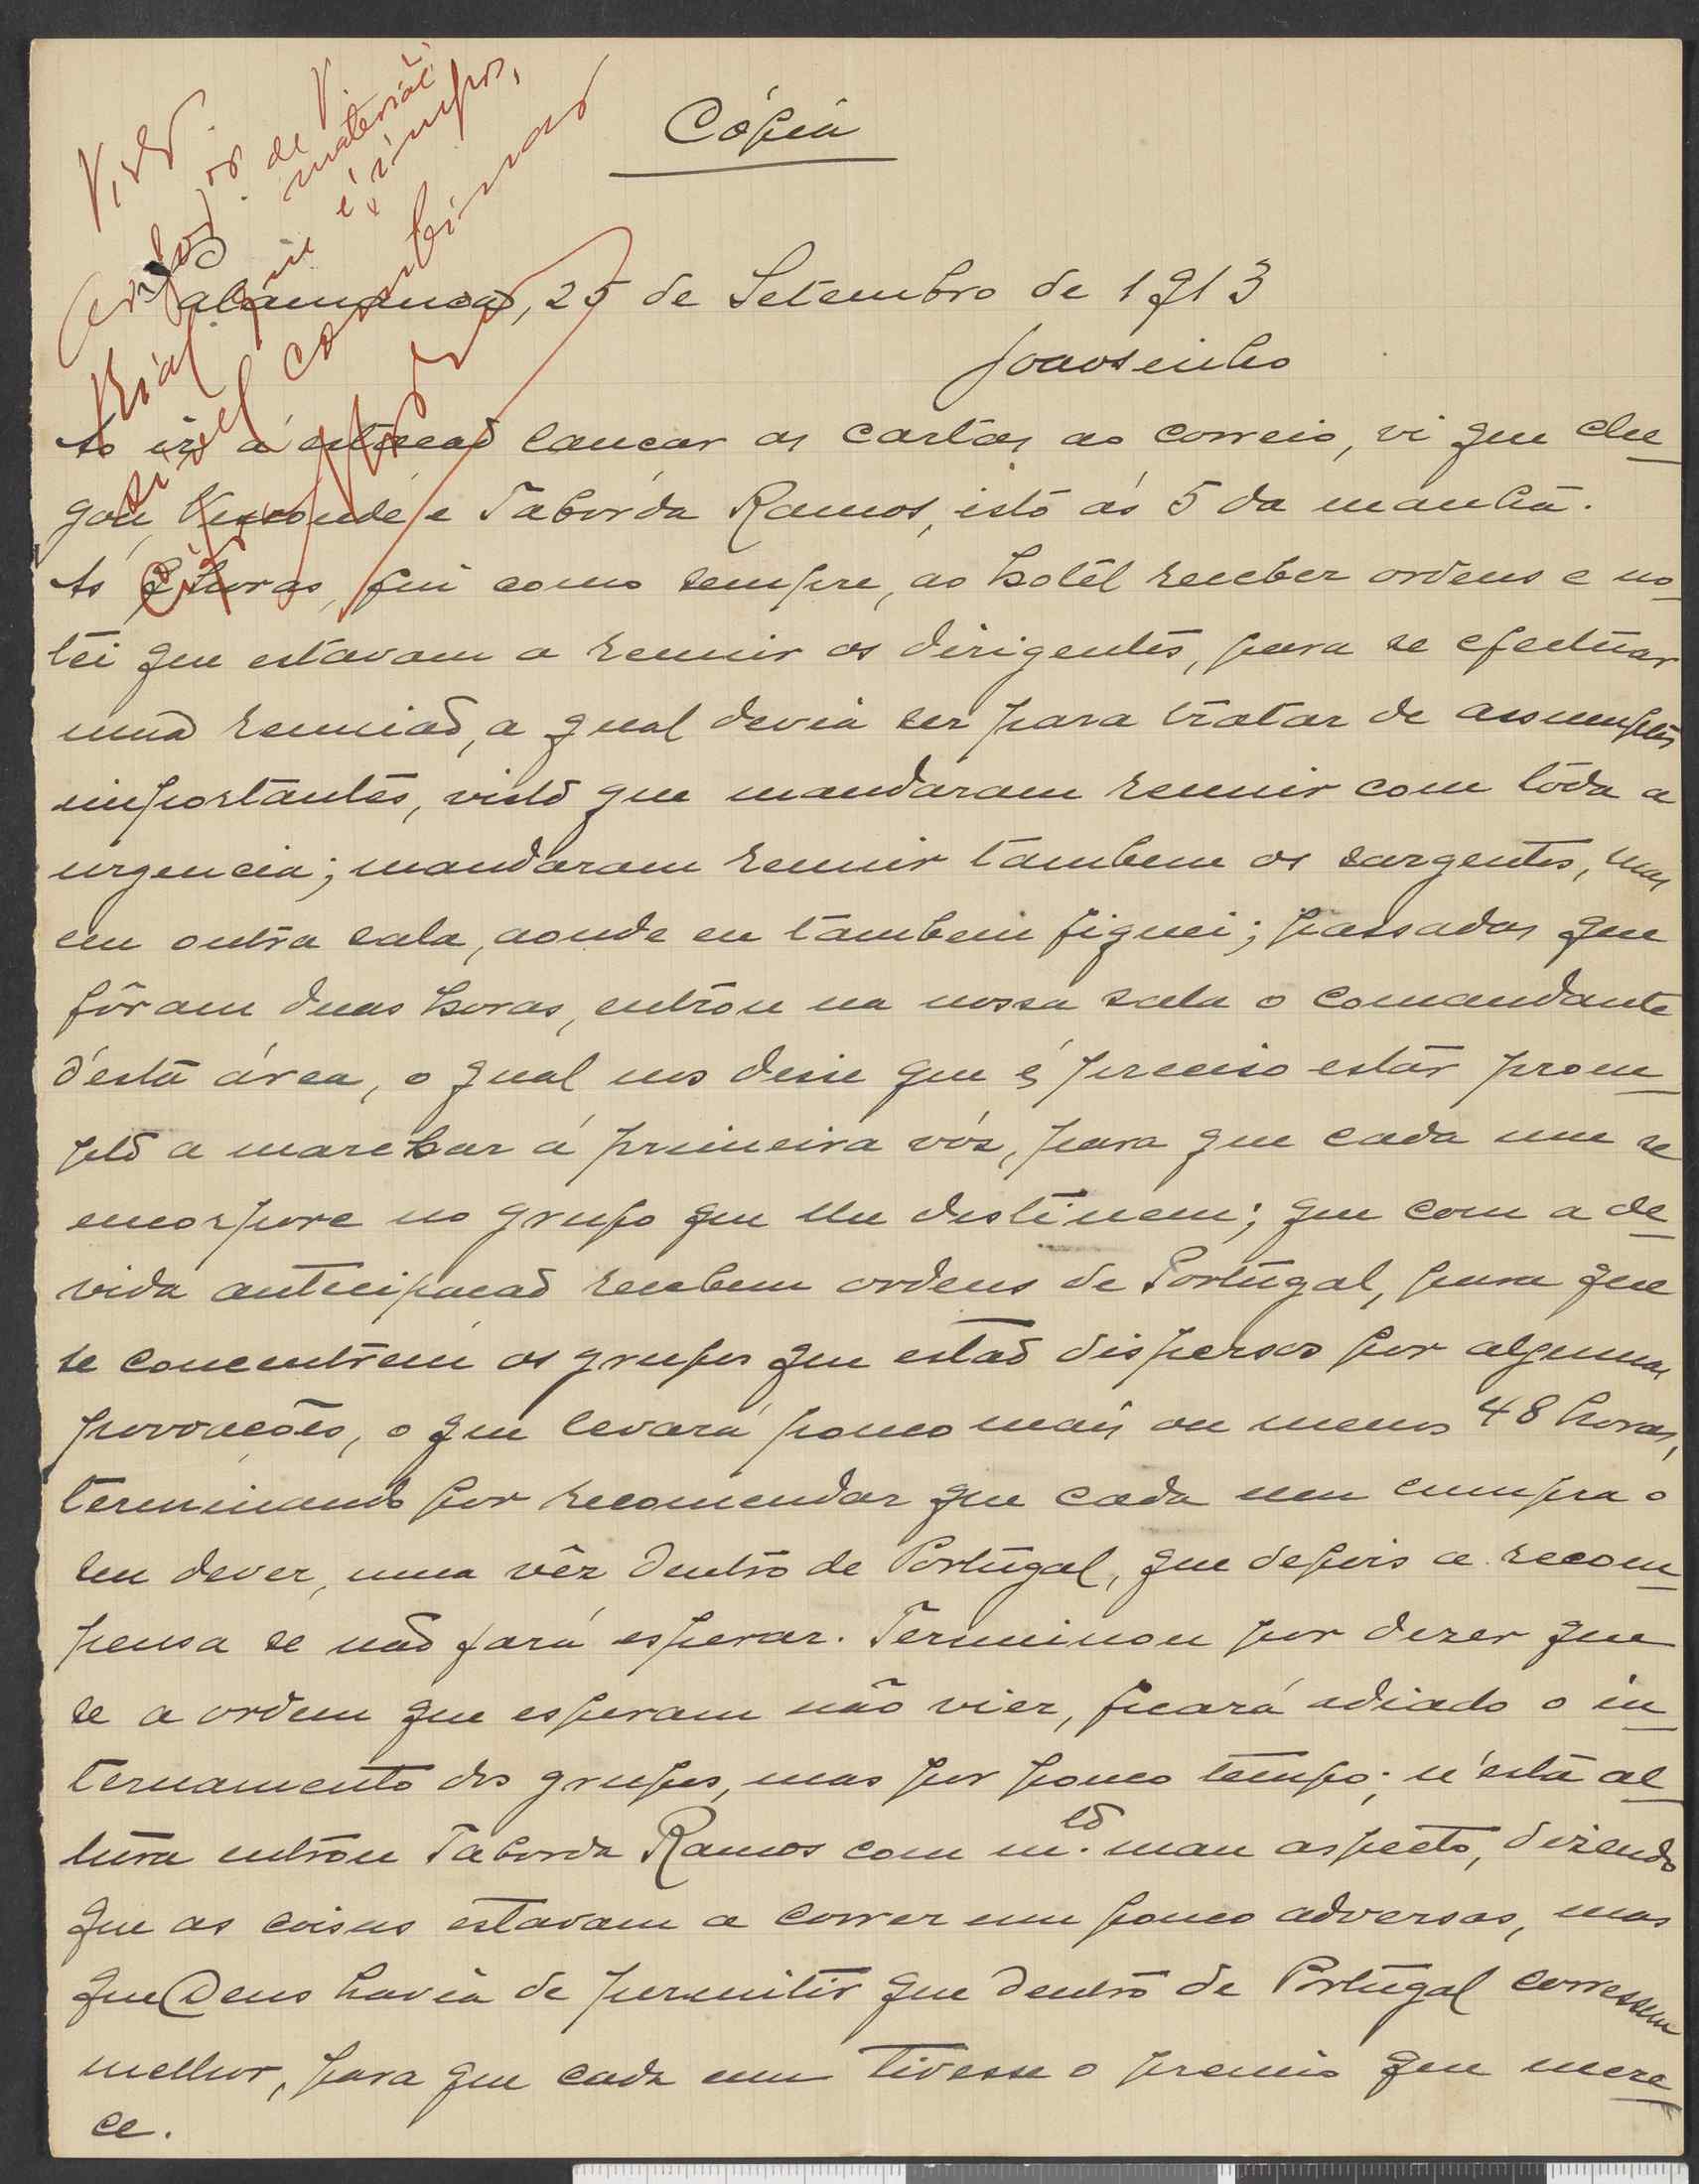 Visto.
Cópia
Salamanca, 25 de Setembro de 1913
Joaosinho
Ao ir á estacaõ lançar as cartas ao correio, vi que che-
gou, Visconde e Taborda Ramos, isto ás 5 da manhã.
As 9 horas, fui como sempre, ao hotel receber ordens e no-
tei que estavam a reunir os dirigentes, para se efectuar
uma reuniaõ, a qual devia ser para tratar de assumptos
importantes, visto que mandaram reunir com tôda a
urgencia; mandaram reunir tambem os sargentos, mas
em outra sala, aonde eu tambem fiquei; passadas que
fôram duas horas, entrou na nossa sala o comandante
d'esta área, o qual nos disse que é preciso estar prom-
pto a marchar á primeira vós, para que cada um se
encorpore no grupo que lhe destinem; que com a de-
vida anticipaçaõ recebem ordens de Portugal, para que
se concentrem os grupos que estaõ dispersos por algumas
povoações, o que levará pouco mais ou menos 48 horas,
terminando por recomendar que cada um cumpra o
seu dever, uma vêz dentro de Portugal, que depois a recom-
pensa se naõ fará esperar. Terminou por dezer que
se a ordem que esperam não vier, ficará adiado o in-
ternamento dos grupos, mas por pouco tempo; n'esta al-
tura entrou Taborda Ramos com m.to mau aspecto, dizendo
que as coisas estavam a correr um pouco adversas, mas
que Deus havia de permitir que dentro de Portugal corressem
melhor, para que cada um tivesse o premio que mere-
ce.